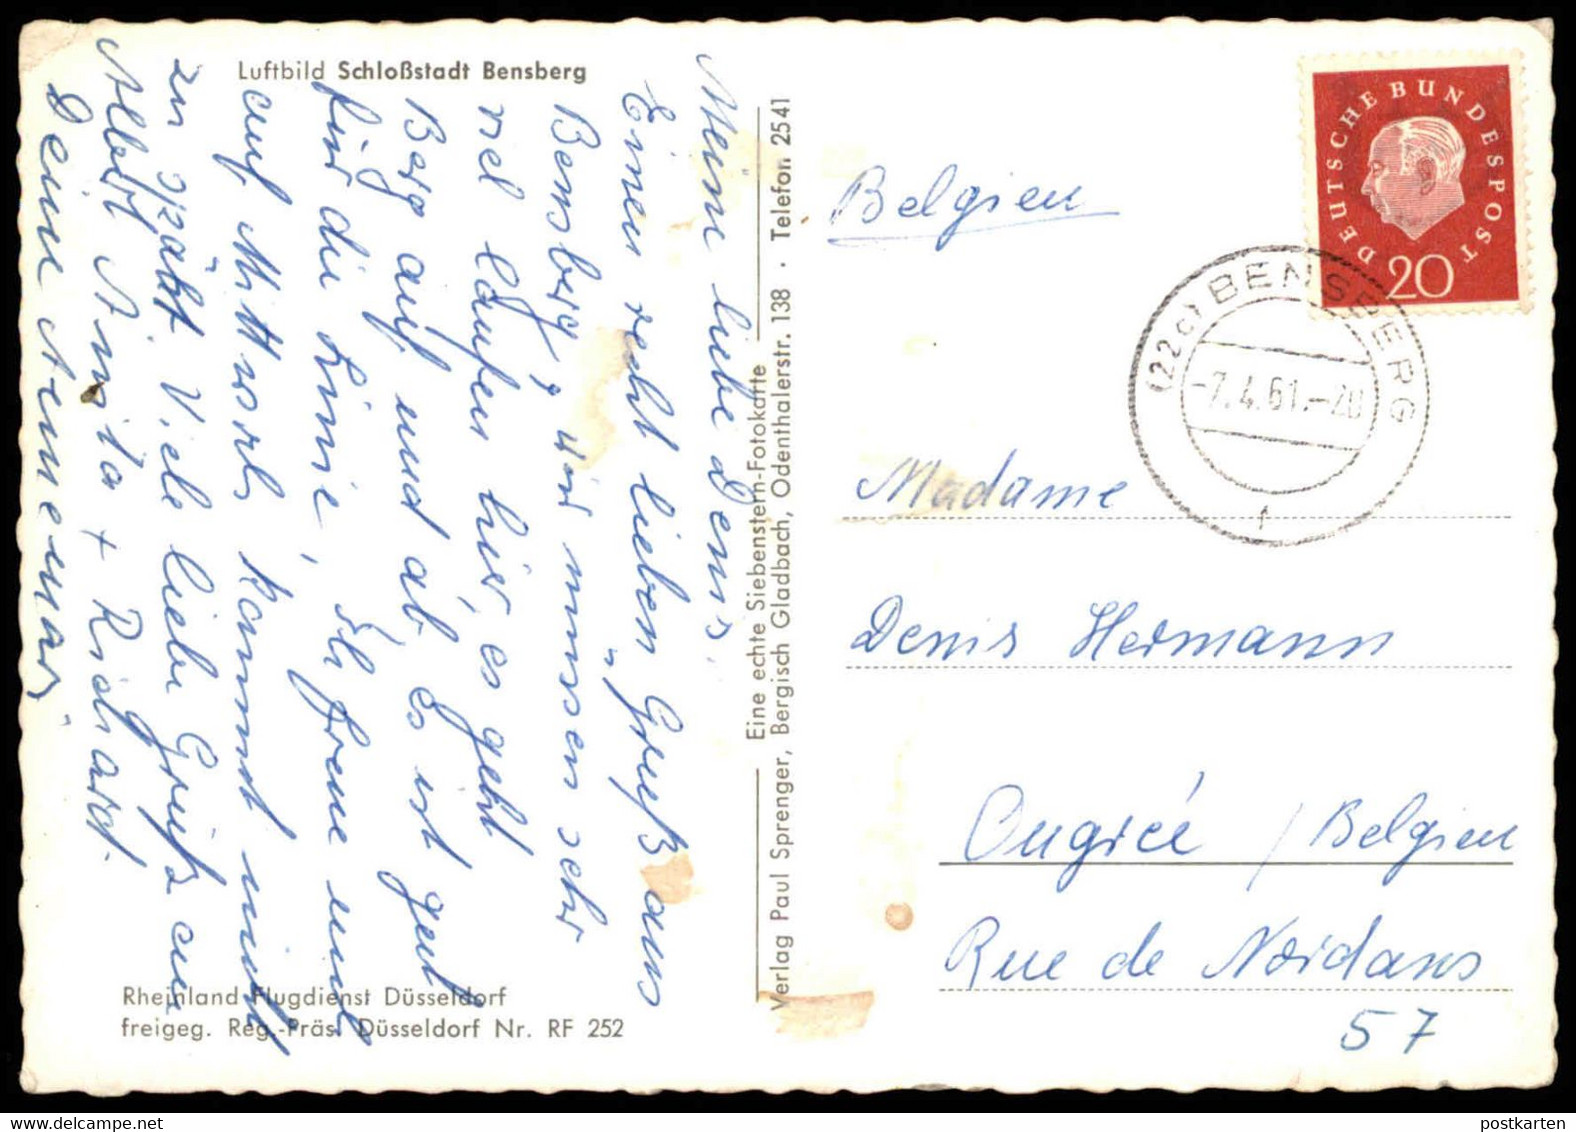 Luftbild Schloßstadt Bensberg
Meine liebe Denis.
Einen recht lieben Gruß aus
Bensberg, wir müssen sehr
viel laufen hier, es geht
Berg auf und ab. Es ist gut
für die Linie, Ich freue mich
auf Mittwoch, kommt nicht
zu spät. Viele liebe Grüße an
Albert Anita + Richard.
Deine Annemarie
Rheinland Flugdienst Düsseldorf
freigeg. Reg.-Präs. Düsseldorf Nr. RF 252
Eine echte Siebenstern-Fotokarte
Verlag Paul Sprenger, Bergisch Gladbach, Odenthalerstr. 138 · Telefon 2541
DEUTSCHE BUNDESPOST
20
(22c) BENSBERG
-7.4.61.-20
f
Belgien
Madame
Denis Hermann
Ougrée / Belgien
Rue de Nordans
57
postkarten